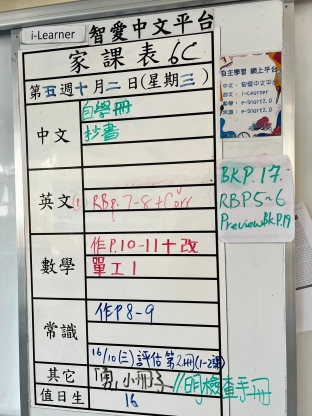 i-Learner 智愛中文平台
家課表 6C
第五週十月二日(星期三)
中文
自學冊
抄書
英文
RBp.7-8+Corr
數學
作P.10-11+改
單工1
常識
作P8-9
16/10(三)評估第2冊(1-2課)
其它
小冊子
//明檢查手冊
值日生
16
自主學習 網上平台
中文: 智愛中文平台
英文: i-Learner
數學: e-Smart2.0
常識: e-Smart2.0
BKP.17.
RBP5~6
PreviewBkP.19